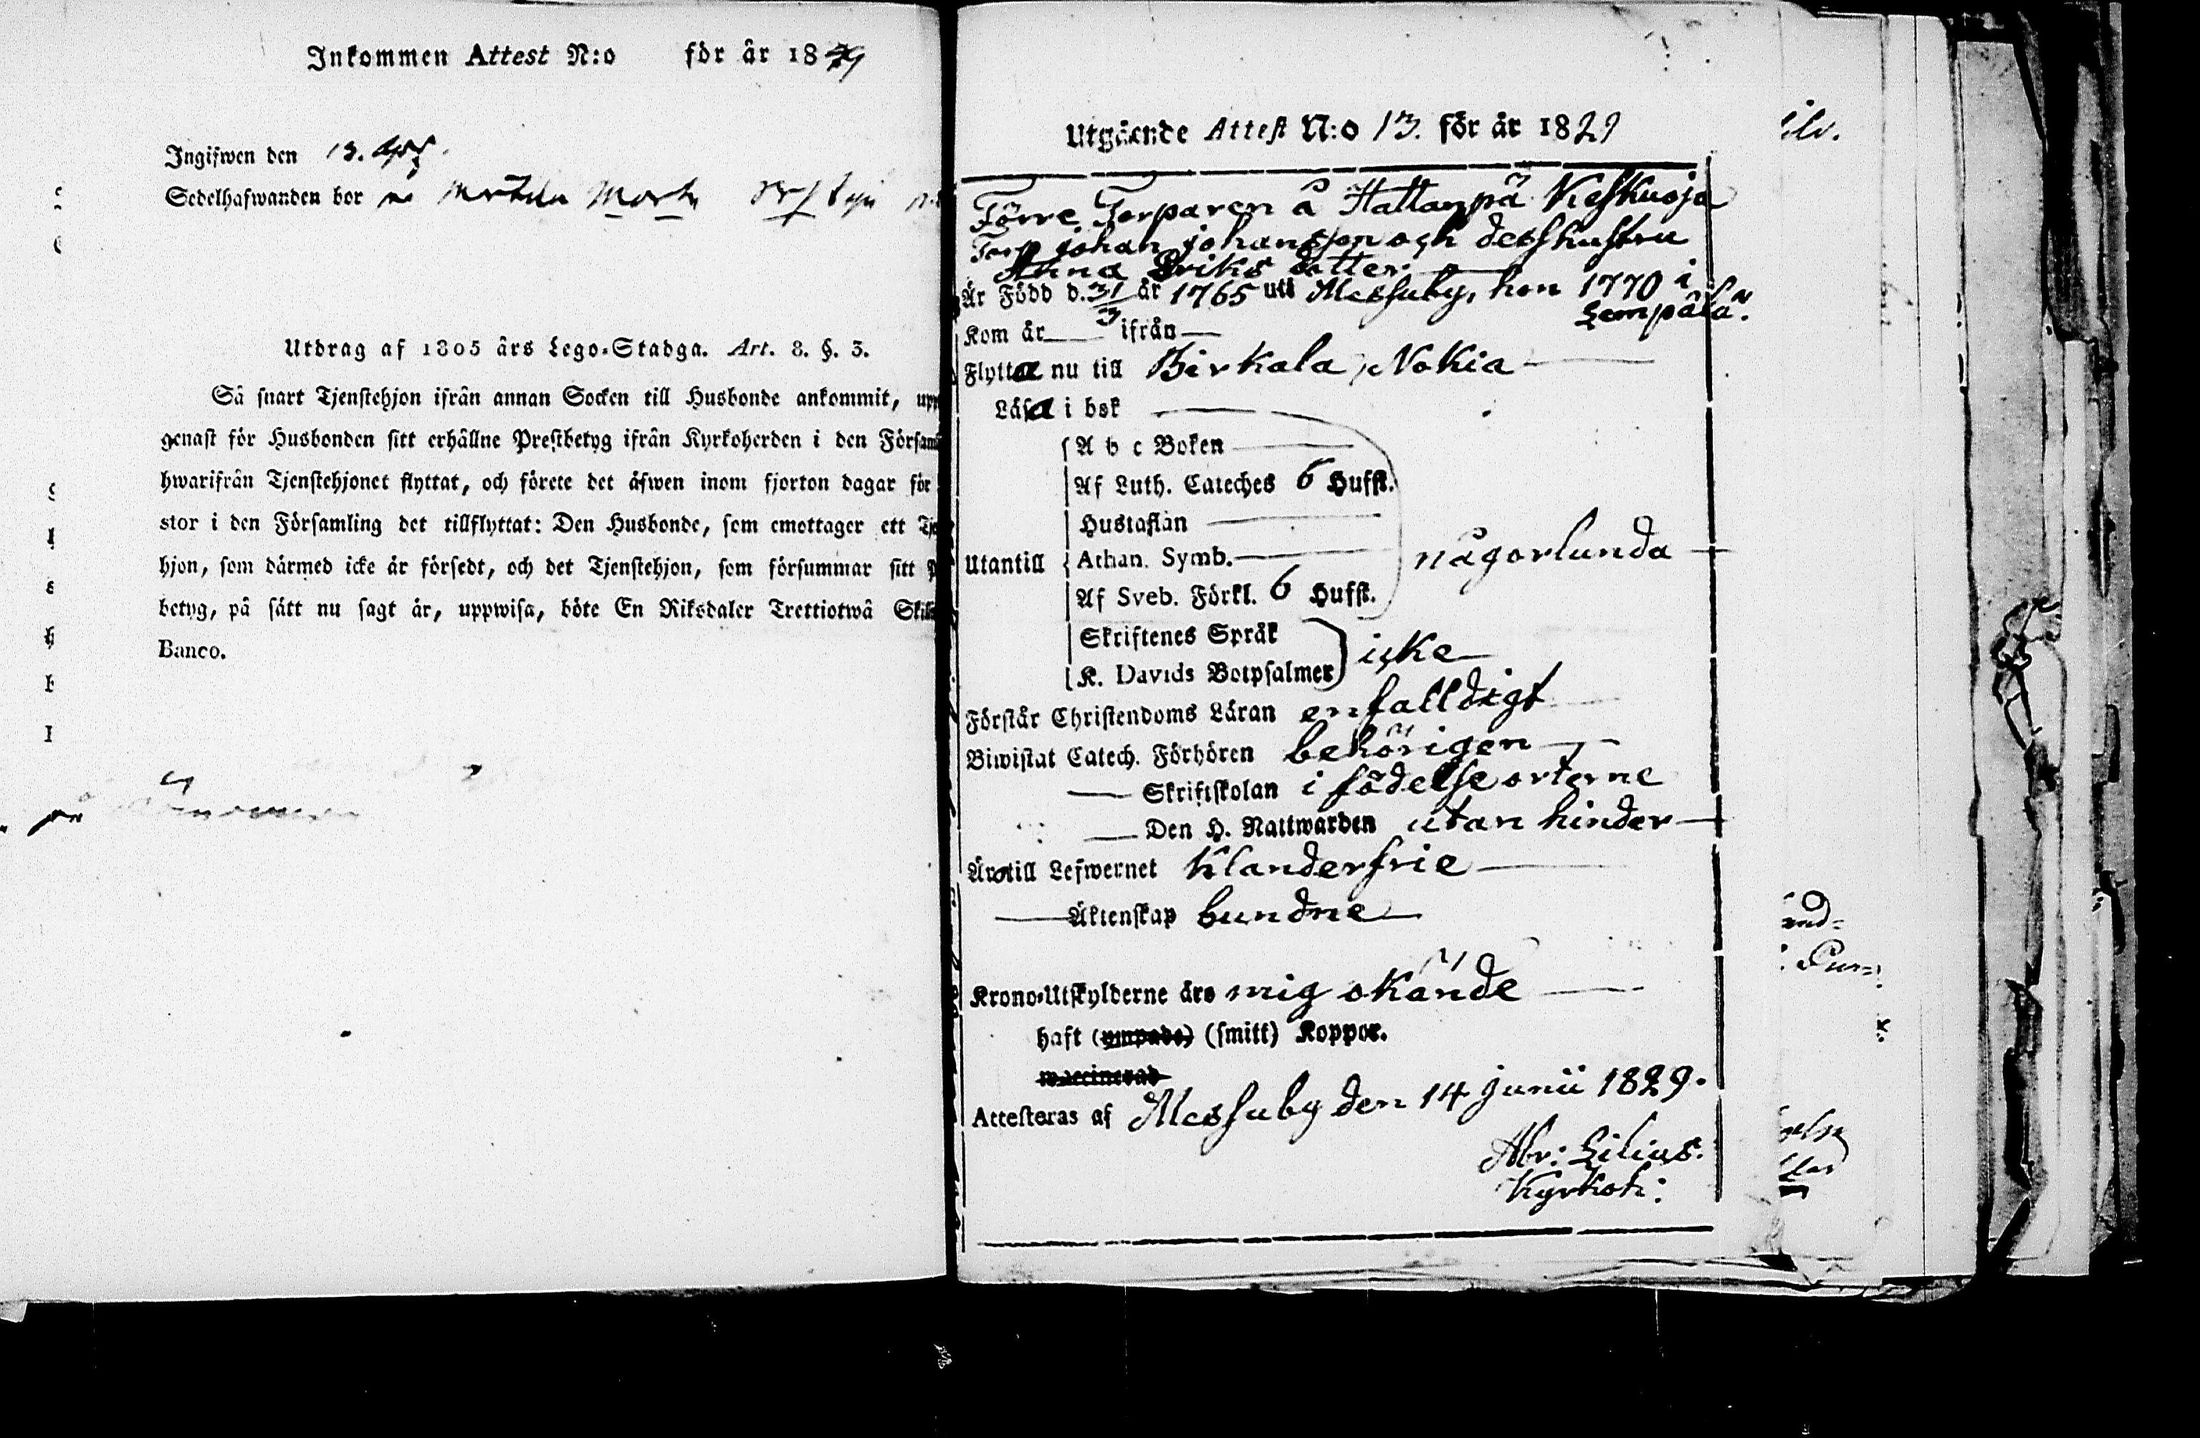 Inkommen Attest N:o för år 1829
Ingifwen den 13.
Sedelhafwanden bor
Utdrag af 1805 års Lego-Stadga. Art. 8. §. 3.
Så snart Tjenstehjon ifrån annan Socken till Husbonde ankommit,
genast för Husbonden sitt erhållne Prestbetyg ifrån Kyrkoherden i den
hwarifrån Tjenstehjonet flyttat, och förete det äfwen inom fjorton dagar för
stor i den Församling det tillflyttat: Den Husbonde, som emottager ett
hjon, som därmed icke är försedt, och det Tjenstehjon, som försummar sitt
betyg, på sätt nu sagt är, uppwisa, böte En Riksdaler Trettiotwå
Banco.
Utgående Attest N:o 13. för år 1829
Förre Torparen å Hattanpä Keskuoja
Torp Johan Johansson och dess hustru
Anna Eriks dotter
Är Född d. 31/3 år 1765 uti Messuby, hon 1770 i
Lempälä.
Kom år ifrån
Flytta nu till Birkala, Nokia
Läsa i bok
A b c Boken
Af Luth. Cateches 6 Hufst.
Hustaflan
Utantill Athan. Symb. någorlunda
Af Sveb. Förkl. 6 Hufst.
Skriftenes Språk
K. Davids Botpsalmer icke
Förstår Christendoms Läran enfalldigt
Biwistat Catech. Förhören behörigen
Skriftskolan i födelseorterne
Den H. Nattwarden utan hinder
Äro till Lefwernet klanderfrie
Äktenskap bundne
Krono-Utskylderne äro mig okände
haft (ympade) (smitt) Koppor.
waccinerad
Attesteras af Messuby den 14 Junii 1829.
Abr: Lilius.
Kyrkoh: